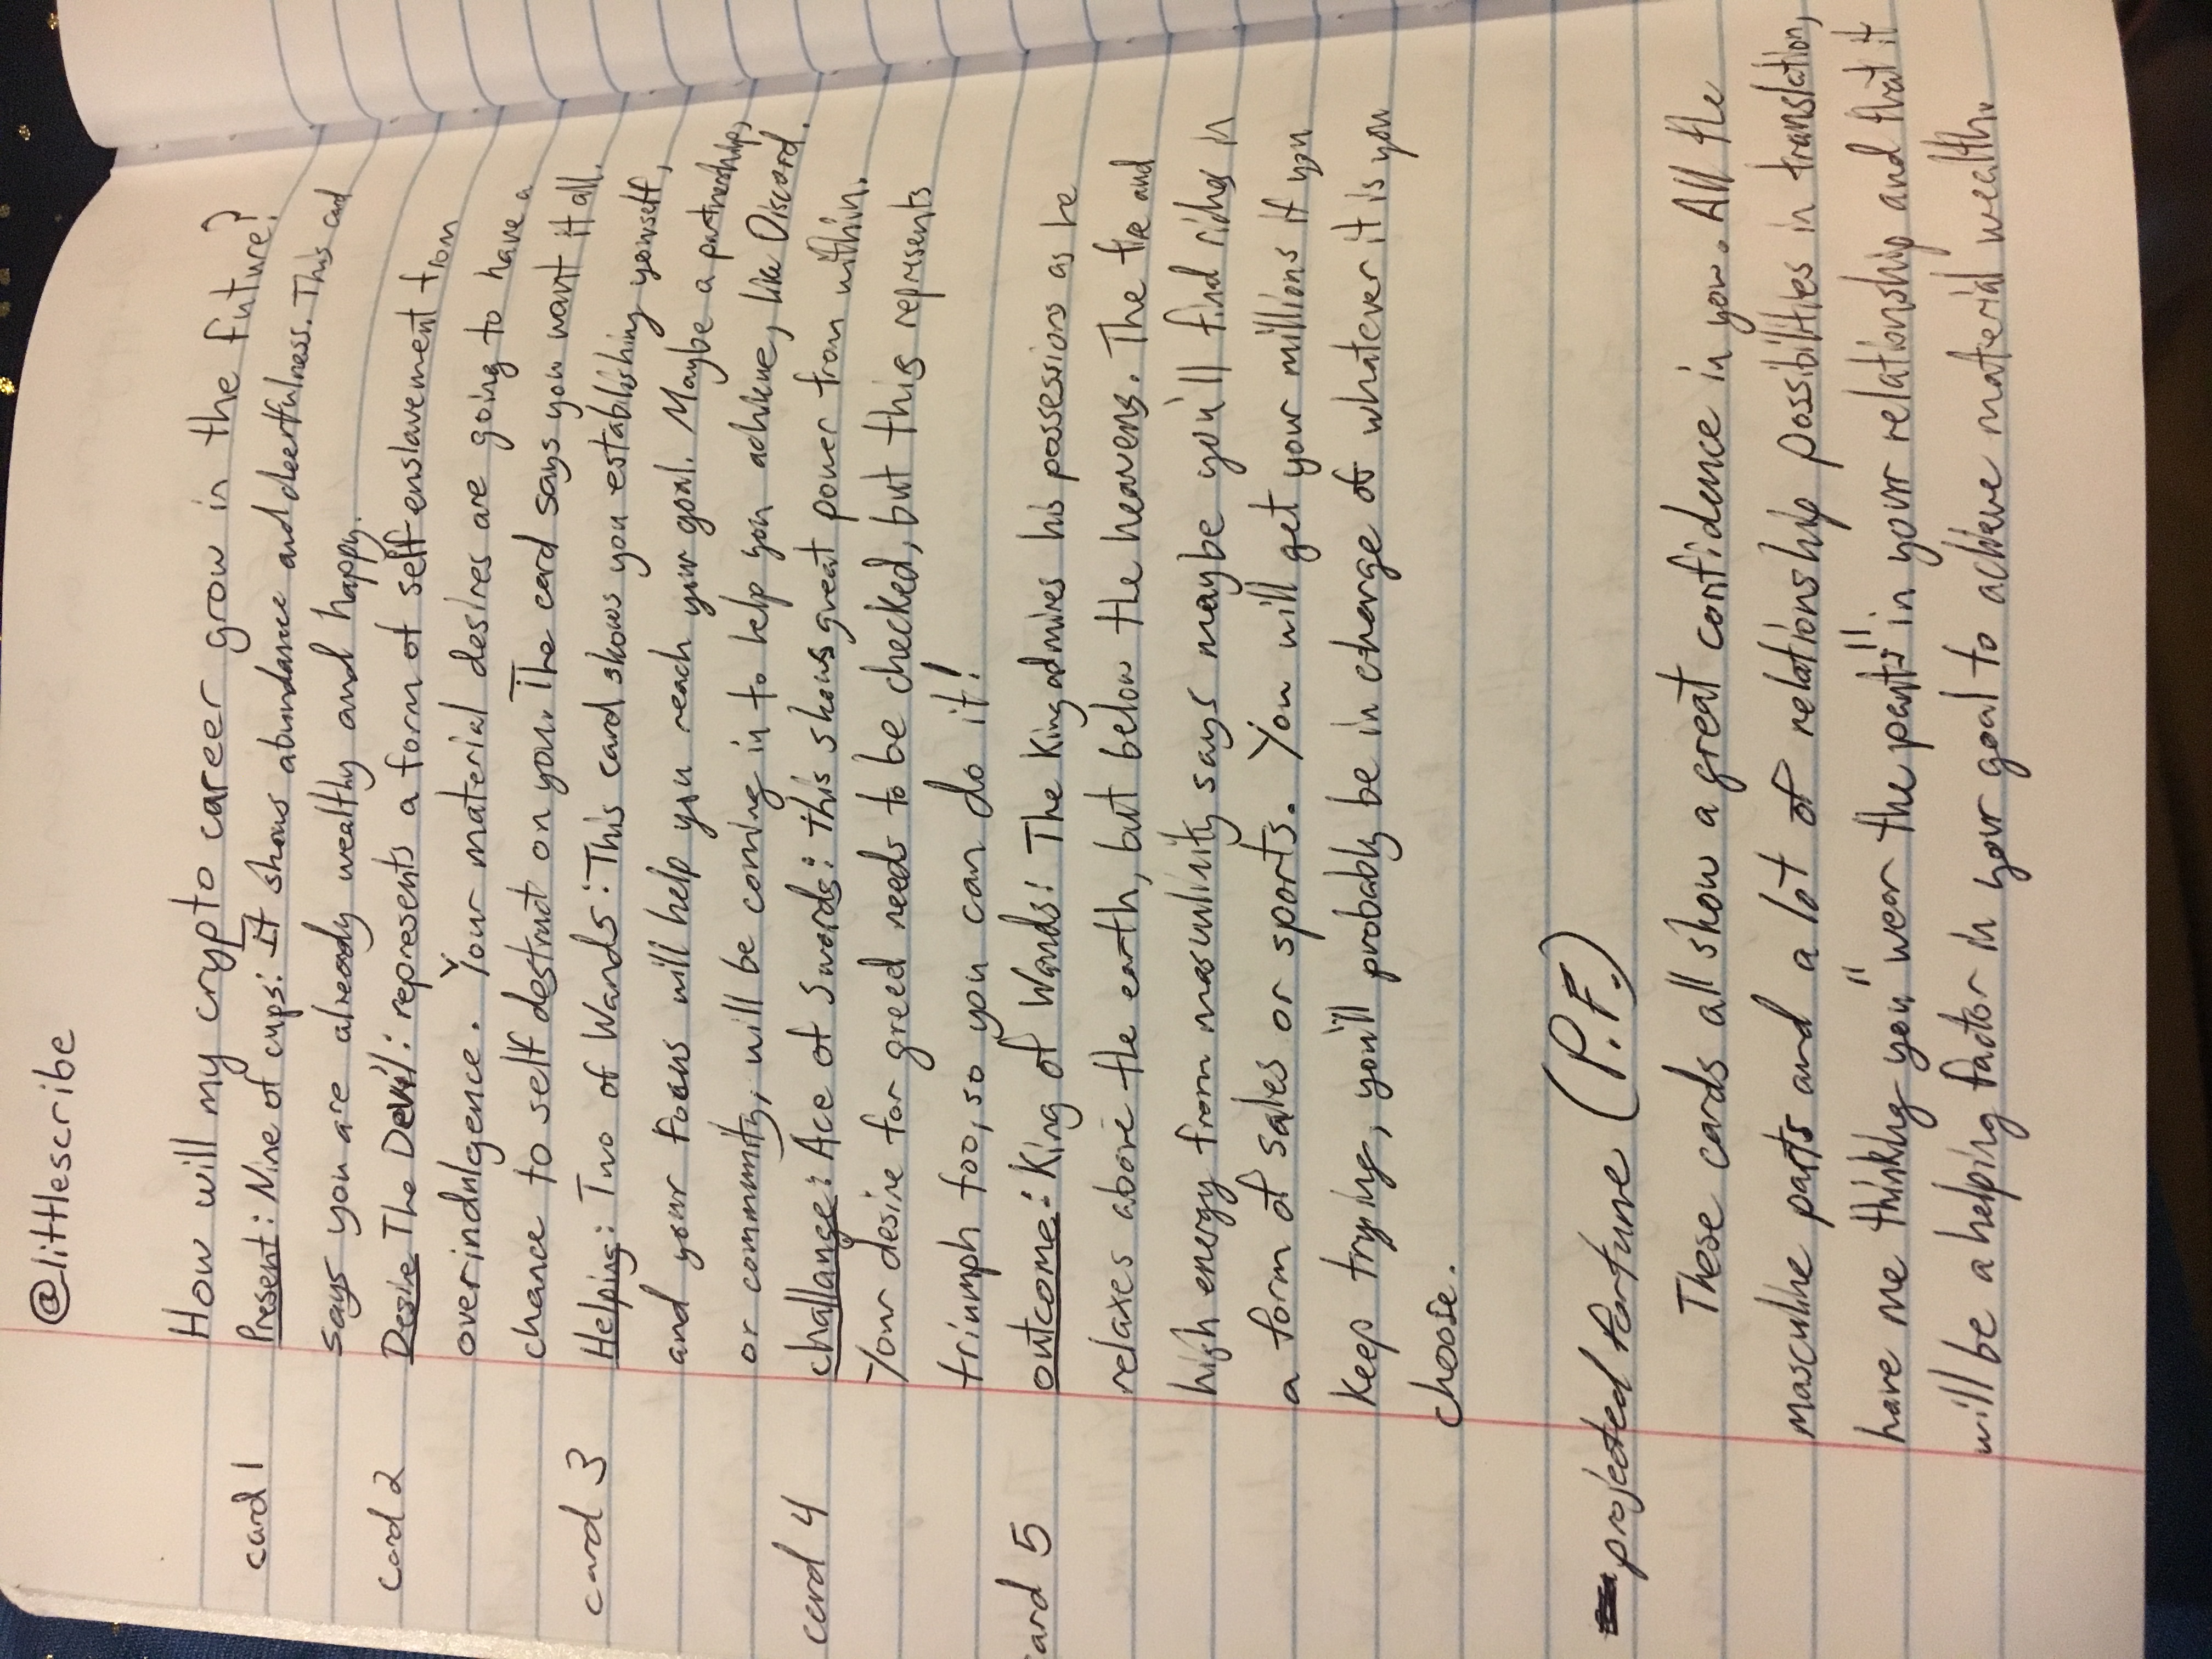 @littlescribe
How will my crypto career grow in the future?
card 1 Present: Nine of cups: It shows abundance and cheerfulness. This card
says you are already wealthy and happy.
card 2 Desire The Devil: represents a form of self enslavement from
overindulgence. Your material desires are going to have a
chance to self destruct on you. The card says you want it all.
card 3 Helping: Two of Wands: This card shows you establishing yourself,
and your focus will help you reach your goal. Maybe a partnership,
or community, will be coming in to help you achieve, like Discord.
card 4 challange: Ace of Swords: this shows great power from within.
Your desire for greed needs to be checked, but this represents
triumph too, so you can do it!
card 5 outcome: King of Wands: The King admires his possessions as he
relaxes above the earth, but below the heavens. The fire and
high energy from masculinity says maybe you'll find riches in
a form of sales or sports. You will get your millions if you
keep trying, you'll probably be in charge of whatever it is you
choose.
projected fortune (P.F.)
These cards all show a great confidence in you. All the
masculine parts and a lot of relationship possibilities in translation,
have me thinking you "wear the pants" in your relationship and that it
will be a helping factor in your goal to achieve material wealth.